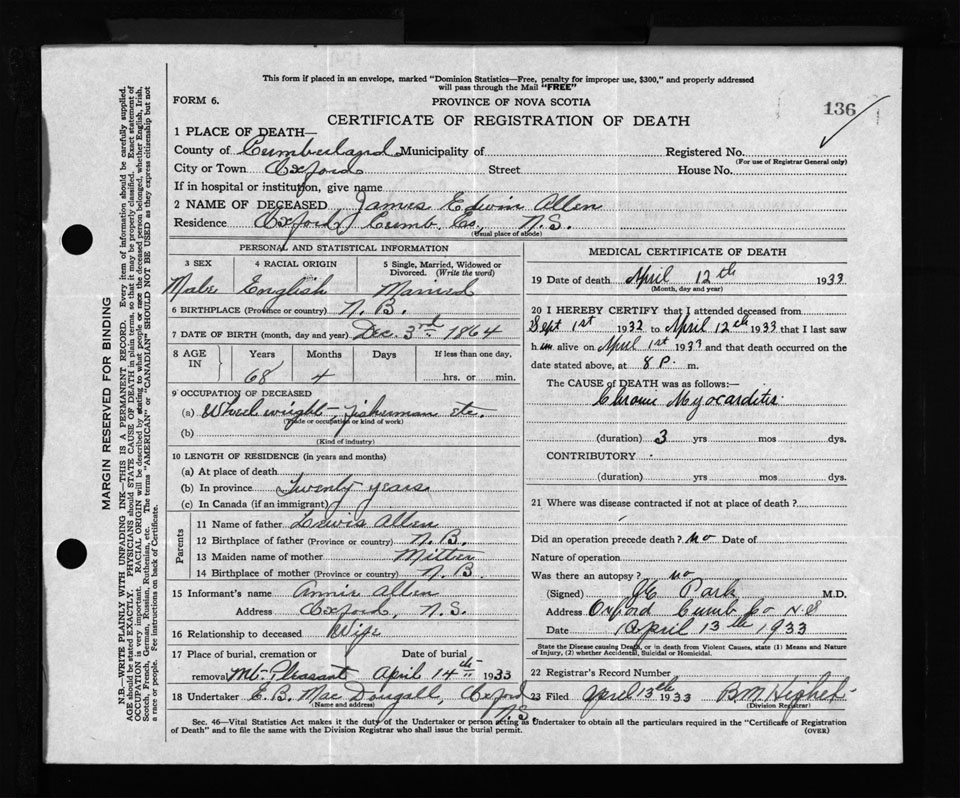 This form if placed in an envelope, marked "Dominion Statistics—Free, penalty for improper use, $300," and properly addressed
will pass through the Mail "FREE"
FORM 6.
PROVINCE OF NOVA SCOTIA
136
CERTIFICATE OF REGISTRATION OF DEATH
1 PLACE OF DEATH—
County of Cumberland Municipality of
Registered No.
(For use of Registrar General only)
City or Town Oxford Street House No.
If in hospital or institution, give name
2 NAME OF DECEASED James Edwin Allen
Residence Oxford, Cumb. Co., N.S.
(Usual place of abode)
PERSONAL AND STATISTICAL INFORMATION
3 SEX
4 RACIAL ORIGIN
5 Single, Married, Widowed or
Divorced. (Write the word)
Male English Married
6 BIRTHPLACE (Province or country) N.B.
7 DATE OF BIRTH (month, day and year) Dec. 3rd 1864
8 AGE IN
Years Months Days If less than one day,
68 4 hrs. or min.
9 OCCUPATION OF DECEASED
(a) Wheelwright, fisherman etc.
(Trade or occupation or kind of work)
(b)
(Kind of industry)
10 LENGTH OF RESIDENCE (in years and months)
(a) At place of death
(b) In province Twenty years
(c) In Canada (if an immigrant)
Parents
11 Name of father Lewis Allen
12 Birthplace of father (Province or country) N.B.
13 Maiden name of mother Mitten
14 Birthplace of mother (Province or country) N.B.
15 Informant's name Annie Allen
Address Oxford, N.S.
16 Relationship to deceased Wife
17 Place of burial, cremation or Date of burial
removal Mt. Pleasant April 14th 1933
18 Undertaker E. B. MacDougall, Oxford
(Name and address)
N.S.
MEDICAL CERTIFICATE OF DEATH
19 Date of death April 12th 1933
(Month, day and year)
20 I HEREBY CERTIFY that I attended deceased from
Sept 1st 1932 to April 12th 1933 that I last saw
him alive on April 1st 1933 and that death occurred on the
date stated above, at 8 P. m.
The CAUSE OF DEATH was as follows:
Chronic Myocarditis
(duration) 3 yrs mos dys.
CONTRIBUTORY
(duration) yrs mos dys.
21 Where was disease contracted if not at place of death?
Did an operation precede death? No Date of
Nature of operation
Was there an autopsy? no
(Signed) Park M.D.
Address Oxford Cumb Co N.S
Date April 13th 1933
State the Disease causing Death, or in death from Violent Causes, state (1) Means and Nature
of Injury, (2) whether Accidental, Suicidal or Homicidal.
22 Registrar's Record Number
23 Filed April 13th 1933
(Division Registrar)
Sec. 46—Vital Statistics Act makes it the duty of the Undertaker or person acting as Undertaker to obtain all the particulars required in the "Certificate of Registration
of Death" and to file the same with the Division Registrar who shall issue the burial permit.
(OVER)
MARGIN RESERVED FOR BINDING
N.B.—WRITE PLAINLY WITH UNFADING INK—THIS IS A PERMANENT RECORD. Every item of information should be carefully supplied.
AGE should be stated EXACTLY. PHYSICIANS should STATE CAUSE OF DEATH in plain terms, so that it may be properly classified. Exact statement of
OCCUPATION is very important. RACIAL ORIGIN will be described by stating to what people or race the deceased person belonged, whether English, Irish,
Scotch, French, German, Russian, Ruthenian, etc. The terms "AMERICAN" or "CANADIAN" SHOULD NOT BE USED as they express citizenship but not
a race or people. See instructions on back of Certificate.